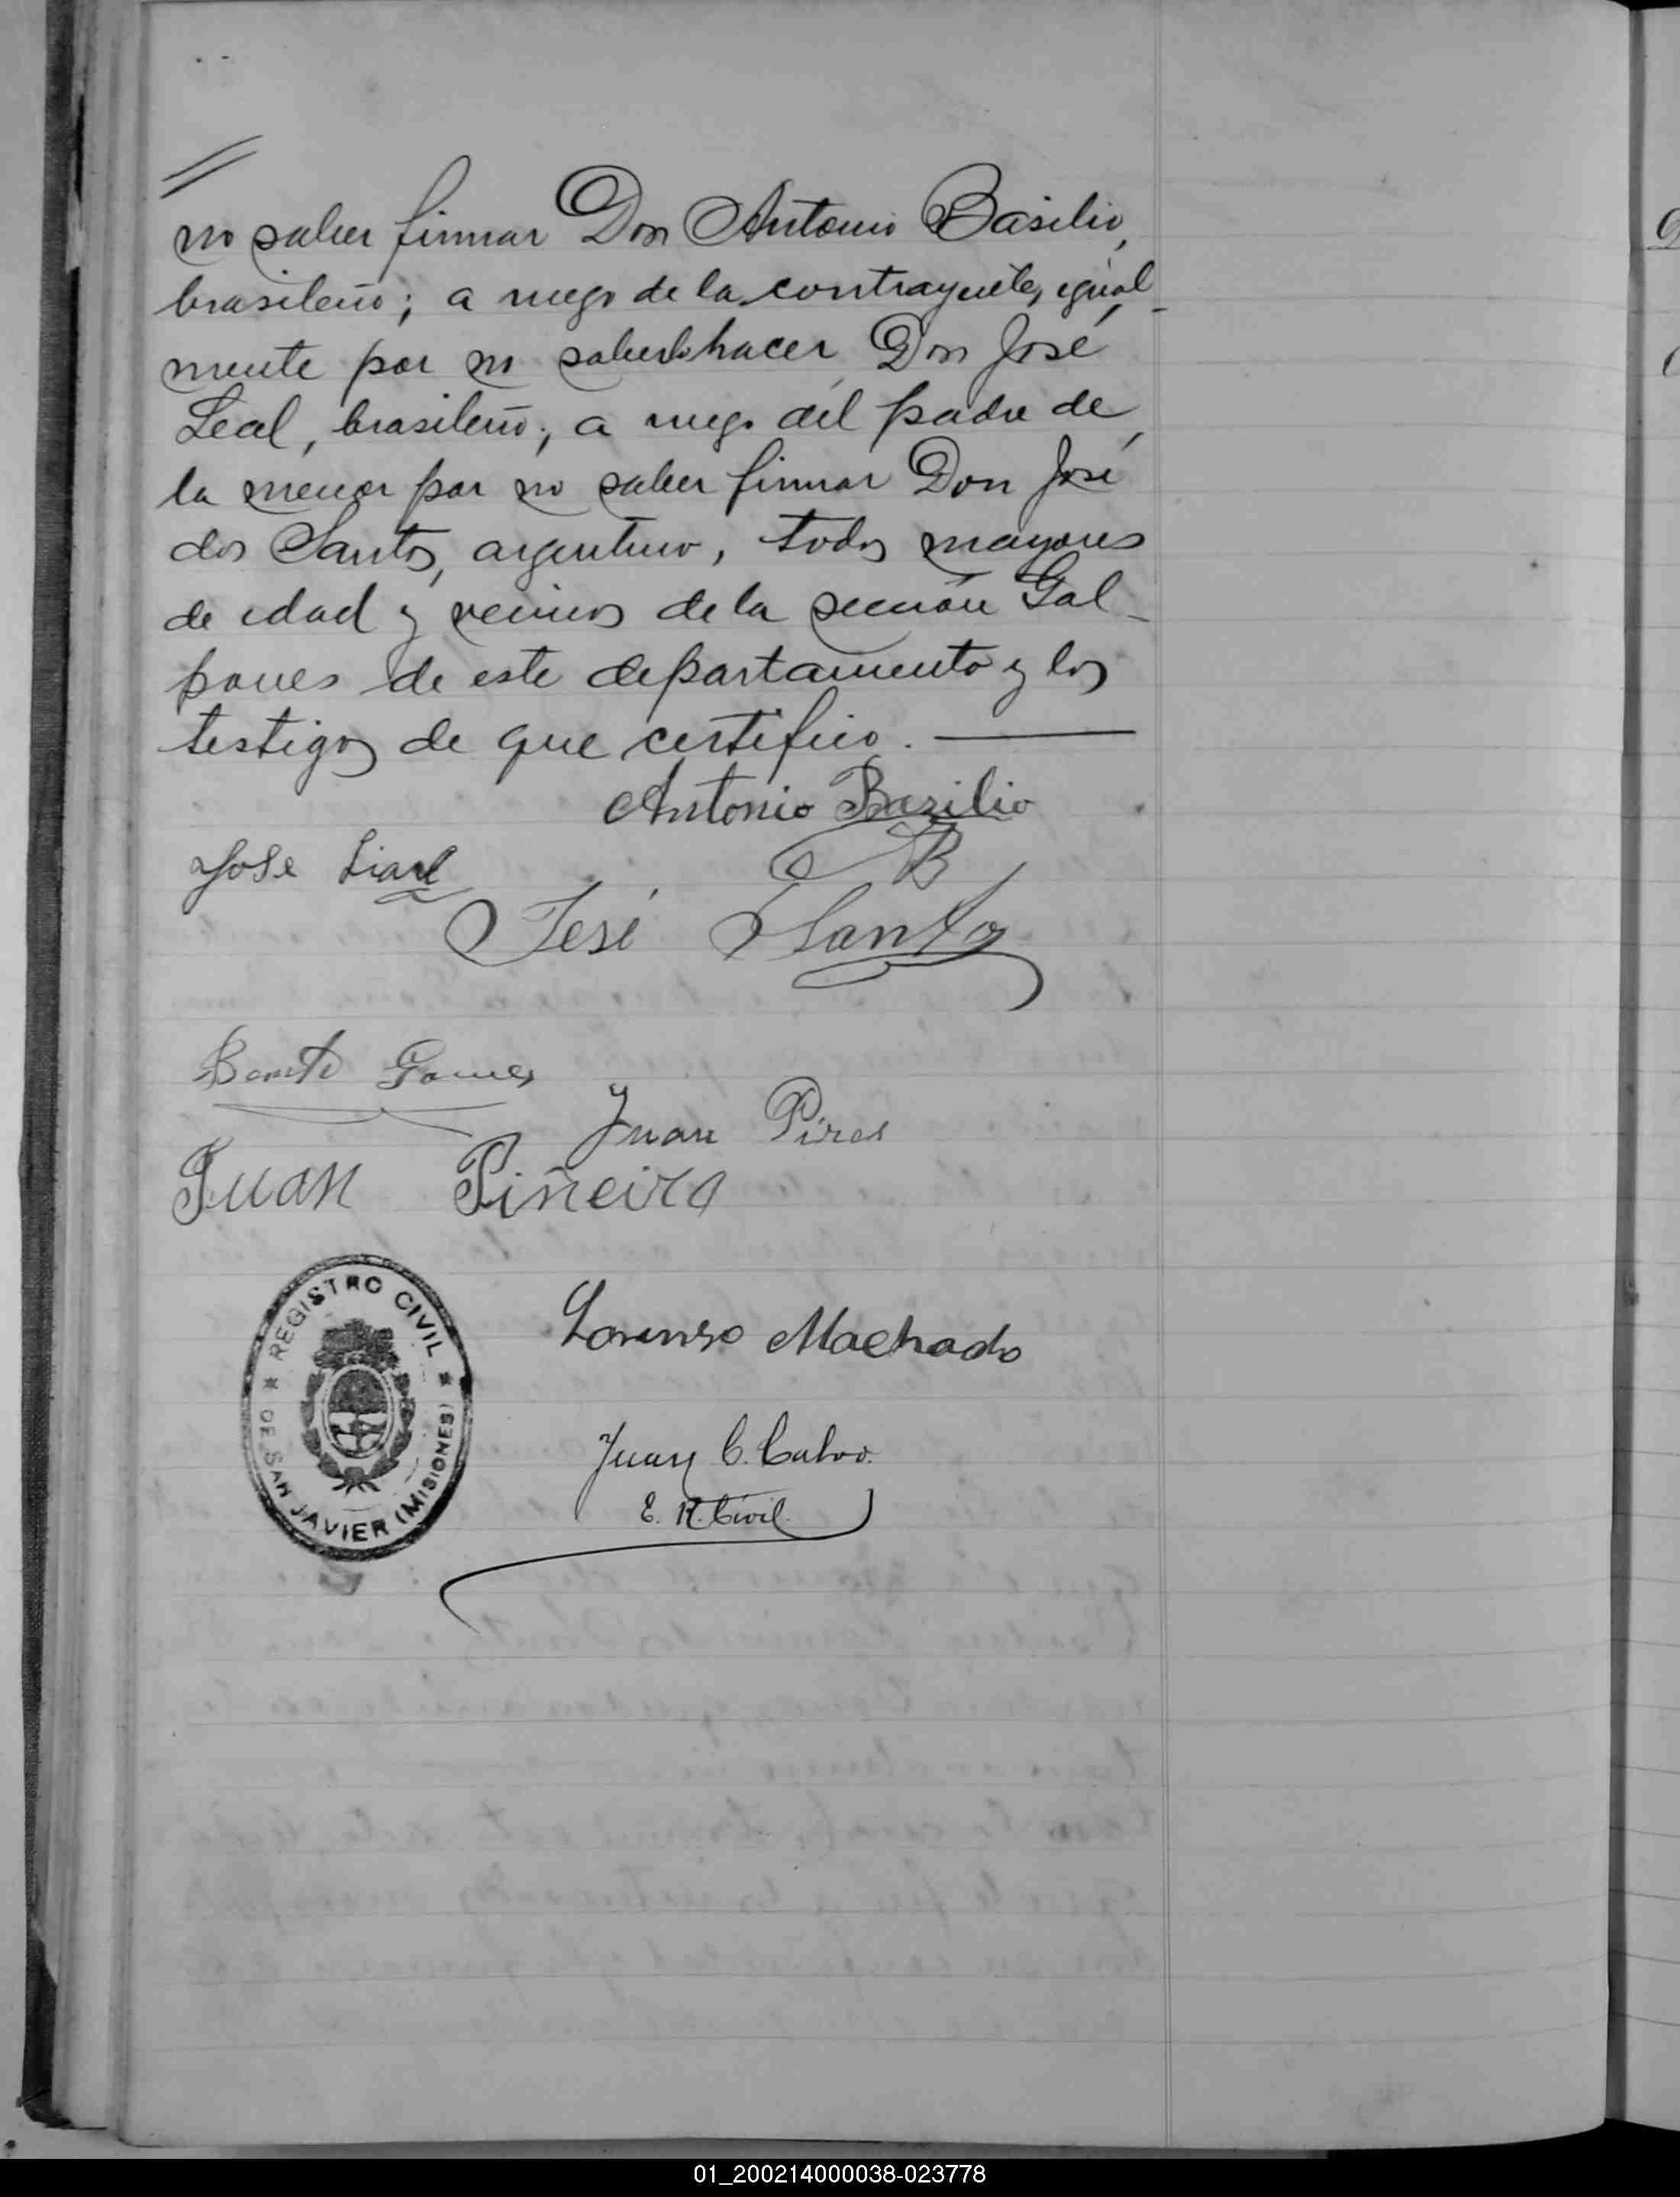 no saber firmar Don Antonio Basilio,
brasileño; a ruego de la contrayente, igual-
mente por no saberlo hacer Don José
Leal, brasileño; a ruego del padre de
la menor por no saber firmar Don José
dos Santos, argentino, todos mayores
de edad y vecinos de la sección Gal-
pones de este departamento y los
testigos de que certifico. —
Antonio Bazilio
AB
Jose Lial
José Santos
Benito Gomes
Juan Pires
Juan Piñeiro
REGISTRO CIVIL
* DE SAN JAVIER (MISIONES) *
Lorenso Machado
Juan C. Calvo.
E. R. Civil.
01_200214000038-023778